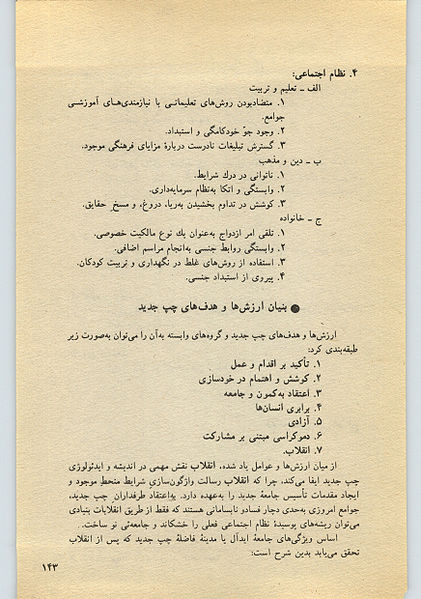 ۴. نظام اجتماعی:
الف ـ تعلیم و تربیت
۱. متضادبودن روش‌های تعلیماتی با نیازمندی‌های آموزشی
جوامع.
۲. وجود جوّ خودکامگی و استبداد.
۳. گسترش تبلیغات نادرست دربارهٔ مزایای فرهنگی موجود.
ب ـ دین و مذهب
۱. ناتوانی در درك شرایط.
۲. وابستگی و اتکا به‌نظام سرمایه‌داری.
۳. کوشش در تداوم بخشیدن به‌ریا، دروغ، و مسخِ حقایق.
ج ـ خانواده
۱. تلقی امر ازدواج به‌عنوان یك نوع مالکیت خصوصی.
۲. وابستگی روابط جنسی به‌انجام مراسم اضافی.
۳. استفاده از روش‌های غلط در نگهداری و تربیت کودکان.
۴. پیروی از استبداد جنسی.
● بنیان ارزش‌ها و هدف‌های چپ جدید
ارزش‌ها و هدف‌های چپ جدید و گروه‌های وابسته به‌آن را می‌توان به‌صورت زیر
طبقه‌بندی کرد:
۱. تأکید بر اقدام و عمل
۲. کوشش و اهتمام در خودسازی
۳. اعتقاد به‌کمون و جامعه
۴. برابری انسان‌ها
۵. آزادی
۶. دموکراسی مبتنی بر مشارکت
۷. انقلاب.
از میان ارزش‌ها و عوامل یاد شده، انقلاب نقش مهمی در اندیشه و ایدئولوژی
چپ جدید ایفا می‌کند، چرا که انقلاب رسالت واژگون‌سازیِ شرایط منحطِ موجود و
ایجاد مقدمات تأسیس جامعهٔ جدید را به‌عهده دارد. به‌اعتقاد طرفداران چپ جدید،
جوامع امروزی به‌حدی دچار فسادو نابسامانی هستند که فقط از طریق انقلابات بنیادی
می‌توان ریشه‌های پوسیدهٔ نظام اجتماعی فعلی را خشکاند و جامعه‌ئی نو ساخت.
اساس ویژگی‌های جامعهٔ ایدآل یا مدینهٔ فاضلهٔ چپ جدید که پس از انقلاب
تحقق می‌یابد بدین شرح است:
۱۴۳